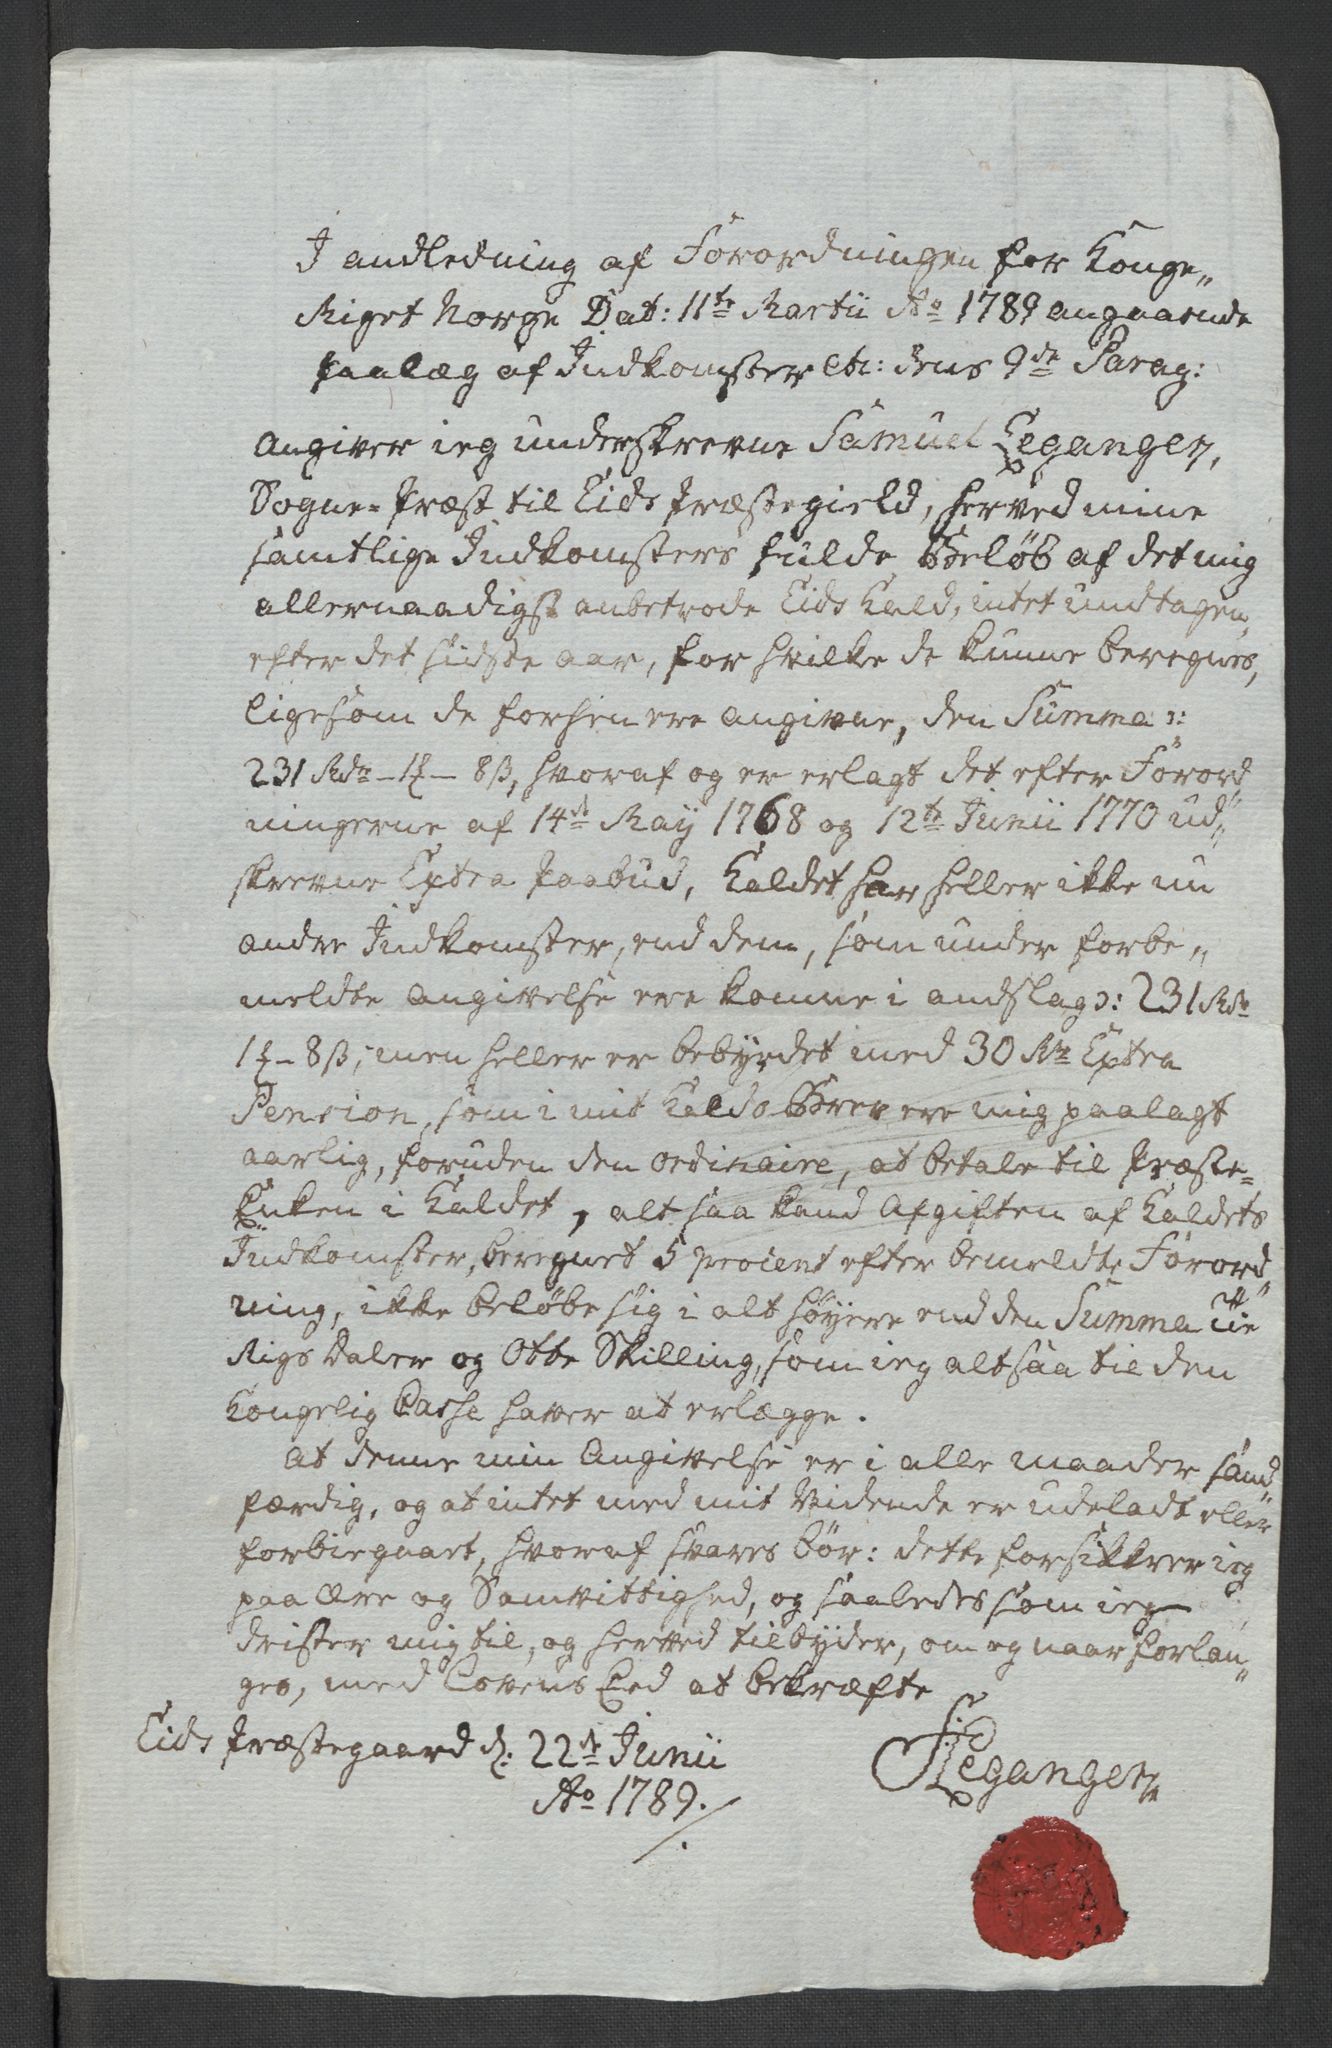 I andledning af Forordningen for Konge„
Riget Norge Dat: 11te Martii Ao 1789 angaaende
Paalæg af Indkomster etc: dens 9de Parag:
Angiver ieg underskrevne Samuel Leganger,
Sogne=Præst til Eids Præstegield, herved mine
samtlige Indkomsters fulde Beløb af det mig
allernaadigst anbetrode Eids Kald, intet undtagen,
efter det sidste aar, for hvilke de kunne beregnes,
ligesom de forhen ere angivne, den Summa ɔ:
231 Rdr – 1 ₰ – 8 ß, hvoraf og er erlagt det efter Forord„
ningerne af 14de Maÿ 1768 og 12te Junii 1770 ud„
skrevne Extra Paabud, Kaldet har heller ikke nu
andre Indkomster, end dem, som under forbe„
meldte Angivelse ere komne i andslag ɔ: 231 Rdr
1 ₰ – 8 ß; men heller er bebyrdet med 30 Rdr Extra
Pension, som i mit Kalds Brev ere mig paalagt
aarlig, foruden den ordinaire, at betale til Præste=
Enken i Kaldet, alt saa kand Afgiften af Kaldets
Indkomster, beregnet 5 procent efter bemeldte Forord„
ning, ikke beløbe sig i alt høyere end den Summa Tie
Rigs Daler og Otte Skilling, som ieg altsaa til den
Kongelig Casse haver at erlægge.
At denne min Angivelse er i alle maader sand„
færdig, og at intet med mit Vidende er udeladt eller
forbiegaaet, hvoraf svares bør: dette forsikkrer ieg
paa Ære og Samvittighed, og saaledes som ieg
drister mig til, og herved tilbyder, om og naar forlan„
ges, med Lovens Eed at bekræfte
Eids Præstegaard d: 22de Junii
Ao 1789.
S Leganger